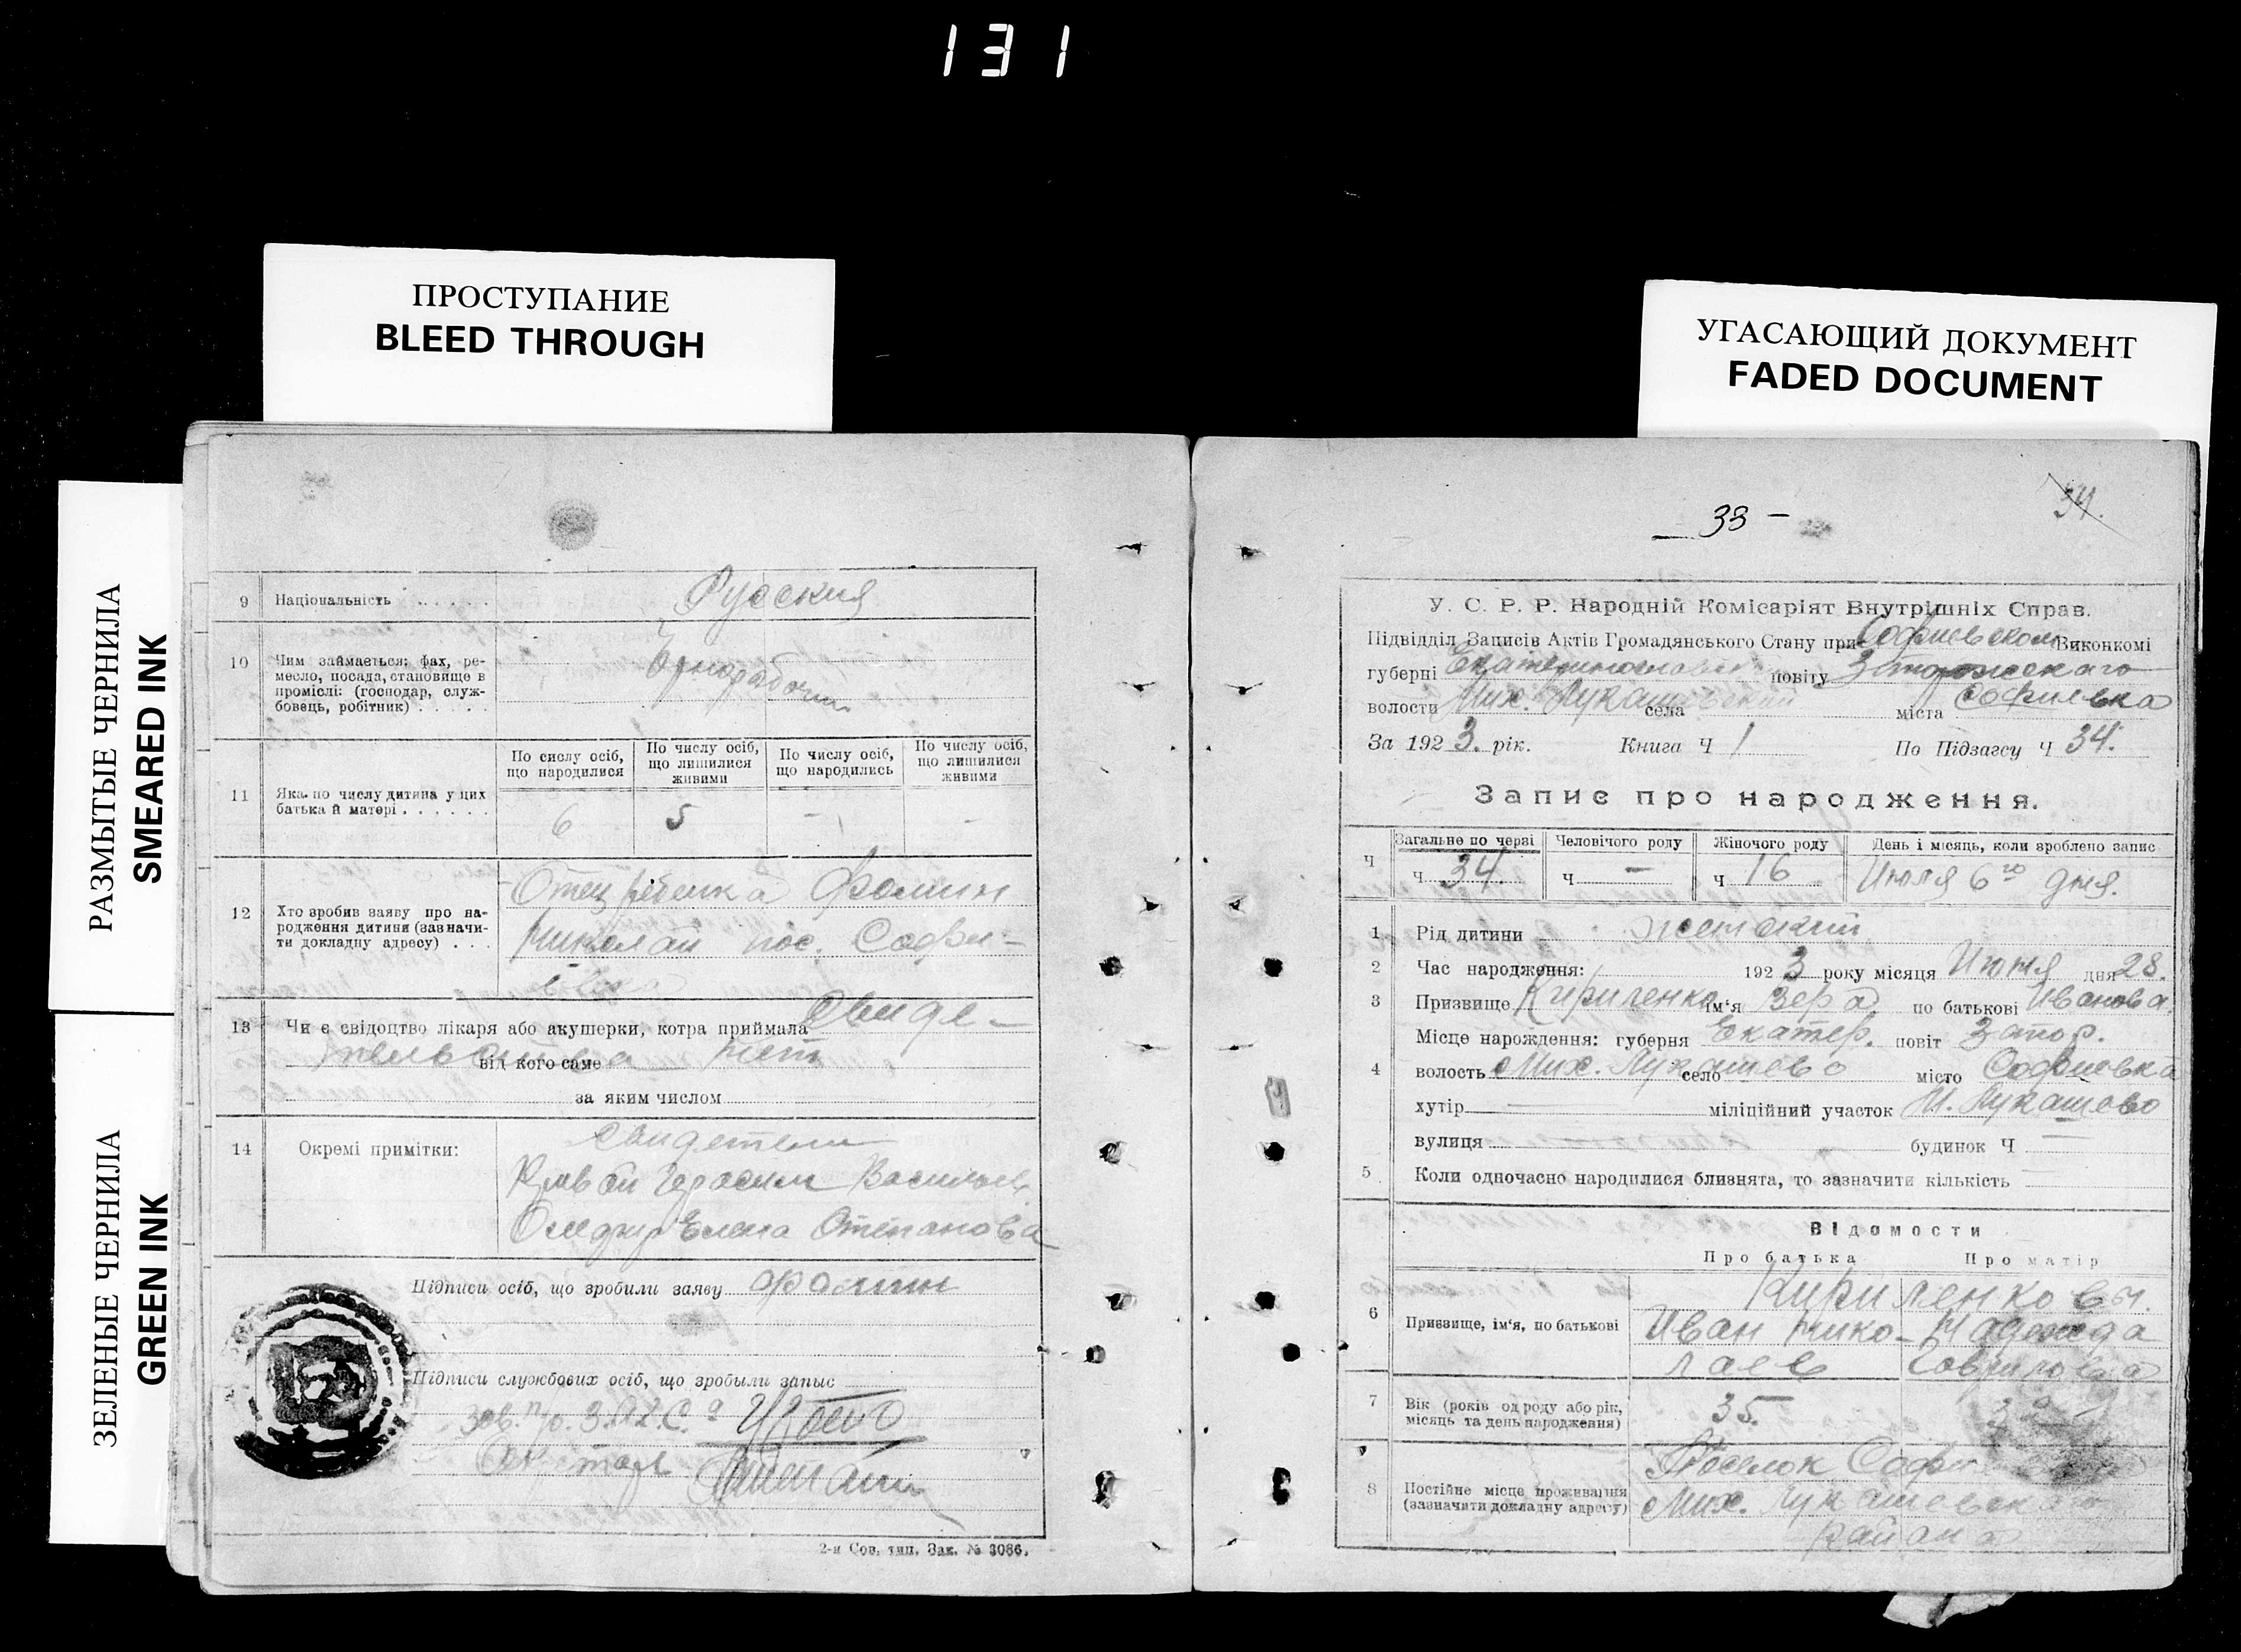 131
ПРОСТУПАНИЕ
BLEED THROUGH
УГАСАЮЩИЙ ДОКУМЕНТ
FADED DOCUMENT
РАЗМЫТЫЕ ЧЕРНИЛА
SMEARED INK
ЗЕЛЕНЫЕ ЧЕРНИЛА
GREEN INK
9 Національність Русския
10 Чим займається: фах, ре-
месло, посада, становище в
промислі: (господар, служ-
бовець, робітник)
Чернорабочий
По сислу осіб, що народилися
По числу осіб, що лишилися живими
По числу осіб, що народились
По числу осіб, що лишилися живими
11 Яка по числу дитина у цих
батька й матері
6 5 - -
12 Хто зробив заяву про на-
родження дитини (зазначи-
ти докладну адресу)
Отец ребенка Фомин
Николай пос. Софи-
евка
13 Чи є свідоцтво лікаря або акушерки, котра приймала Свиде-
тельства нет
від кого саме
за яким числом
14 Окремі примітки:
Свидетели
Герасим Васильев
Елена Степанова
Підписи осіб, що зробили заяву Фомин
Підписи службових осіб, що зробыли запыс
Зав. п/о. З.А.Г.С.а
Секретарь
2-и Сов. тип. Зак. № 3086.
33 -
34.
У. С. Р. Р. Народній Комісаріят Внутрішніх Справ.
Підвідділ Записів Актів Громадянського Стану при Софиевском Виконкомі
губерні Екатеринославской повіту Запорожского
волости Мих. Лукашевский села міста Софиевка
За 1923. рік. Книга Ч 1 По Підзагсу Ч 34.
Запис про народження.
Загальне по черзі Человічого роду Жіночого роду День і місяць, коли зроблено запис
Ч ч 34. ч — ч 16 Июля 6го дня.
1 Рід дитини женский
2 Час народження: 1923 року місяця Июня дня 28.
3 Призвище Кириленко ім'я Вера по батькові Иванова
Місце народження: губерня Екатер. повіт Запор.
4 волость Мих. Лукашево село місто Софиевка
хутір міліційний участок М. Лукашево
вулиця будинок Ч —
5 Коли одночасно народилися близнята, то зазначити кількість
Відомости
Про батька Про матір
6 Призвище, ім'я, по батькові
Кириленковы.
Иван Нико- Надежда
лаев Гаврилова
7 Вік (років од роду або рік,
місяць та день народження)
35.
8 Постійне місце проживання
(зазначити докладну адресу)
Поселок
Мих. Лукашевского
района